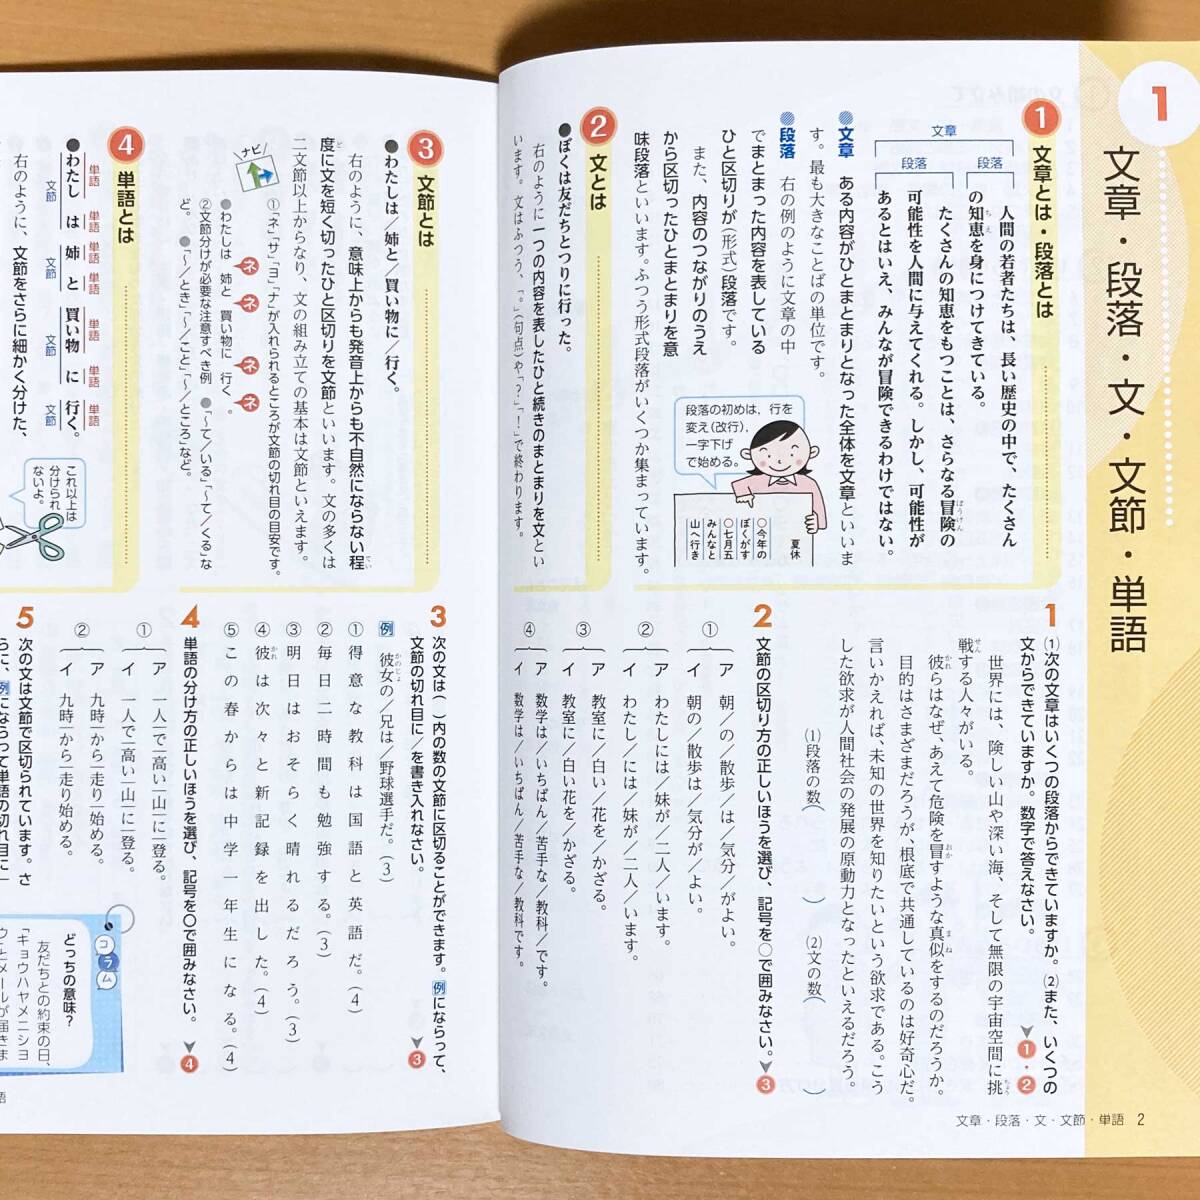 1
文章・段落・文・文節・単語
1 文章とは・段落とは
文章
段落
段落
人間の若者たちは、長い歴史の中で、たくさん
の知恵を身につけてきている。
ちえ
たくさんの知恵をもつことは、さらなる冒険の
ぼうけん
可能性を人間に与えてくれる。しかし、可能性が
あるとはいえ、みんなが冒険できるわけではない。
文章 ある内容がひとまとまりとなった全体を文章といいま
す。最も大きなことばの単位です。
段落 右の例のように文章の中
でまとまった内容を表している
ひと区切りが(形式)段落です。
また、内容のつながりのうえ
から区切ったひとまとまりを意
味段落といいます。ふつう形式段落がいくつか集まっています。
段落の初めは、行を
変え(改行)、
一字下げ
で始める。
夏休
○今年の
ぼくがす
○七月五
みんなと
山へ行き
2 文とは
●ぼくは友だちとつりに行った。
右のように一つの内容を表したひと続きのまとまりを文とい
います。文はふつう、「。」(句点)や「?」「!」で終わります。
1 (1)次の文章はいくつの段落からできていますか。(2)また、いくつの
文からできていますか。数字で答えなさい。
1・2
世界には、険しい山や深い海、そして無限の宇宙空間に挑
ちょう
戦する人々がいる。
せん
彼らはなぜ、あえて危険を冒すような真似をするのだろうか。
かれ
おか
まね
目的はさまざまだろうが、根底で共通しているのは好奇心だ。
言いかえれば、未知の世界を知りたいという欲求である。こう
した欲求が人間社会の発展の原動力となったといえるだろう。
(1)段落の数( )
(2)文の数( )
2 文節の区切り方の正しいほうを選び、記号を○で囲みなさい。
3
①
ア 朝/の/散歩/は/気分/がよい。
イ 朝の/散歩は/気分が/よい。
②
ア わたしには/妹が/二人/います。
イ わたし/には/妹が/二人/います。
③
ア 教室に/白い/花を/かざる。
イ 教室に/白い花を/かざる。
④
ア 数学は/いちばん/苦手な/教科/です。
イ 数学は/いちばん/苦手な/教科です。
文章・段落・文・文節・単語 2
3 文節とは
●わたしは/姉と/買い物に/行く。
右のように、意味上からも発音上からも不自然にならない程
てい
度に文を短く切ったひと区切りを文節といいます。文の多くは
ど
二文節以上からなり、文の組み立ての基本は文節といえます。
ナビ
①「ネ」「サ」「ヨ」「ナ」が入れられるところが文節の切れ目の目安です。
●わたしは ネ 姉と ネ 買い物に ネ 行く ネ。
②文節分けが必要な注意すべき例 ●「~て/いる」「~て/くる」な
ど。 ●「~/とき」「~/こと」「~/ところ」など。
4 単語とは
単語 単語 単語 単語 単語 単語 単語
●わたし は 姉 と 買い物 に 行く。
文節 文節 文節 文節
右のように、文節をさらに細かく分けた、
これ以上は
分けられ
ないよ。
3 次の文は( )内の数の文節に区切ることができます。例にならって、
文節の切れ目に/を書き入れなさい。
3
例 彼女の/兄は/野球選手だ。(3)
かのじょ
① 得意な教科は国語と英語だ。(4)
② 毎日二時間も勉強する。(3)
③ 明日はおそらく晴れるだろう。(3)
④ 彼は次々と新記録を出した。(4)
かれ
⑤ この春からは中学一年生になる。(4)
4 単語の分け方の正しいほうを選び、記号を○で囲みなさい。
4
①
ア 一人で―高い―山―に―登る。
イ 一人で―高い―山に―登る。
②
ア 九時―から―走り―始める。
イ 九時―から―走り始める。
5 次の文は文節で区切られています。さ
らに、例にならって単語の切れ目に―
コラム
どっちの意味?
友だちとの約束の日、
「キョウハヤメニシヨ